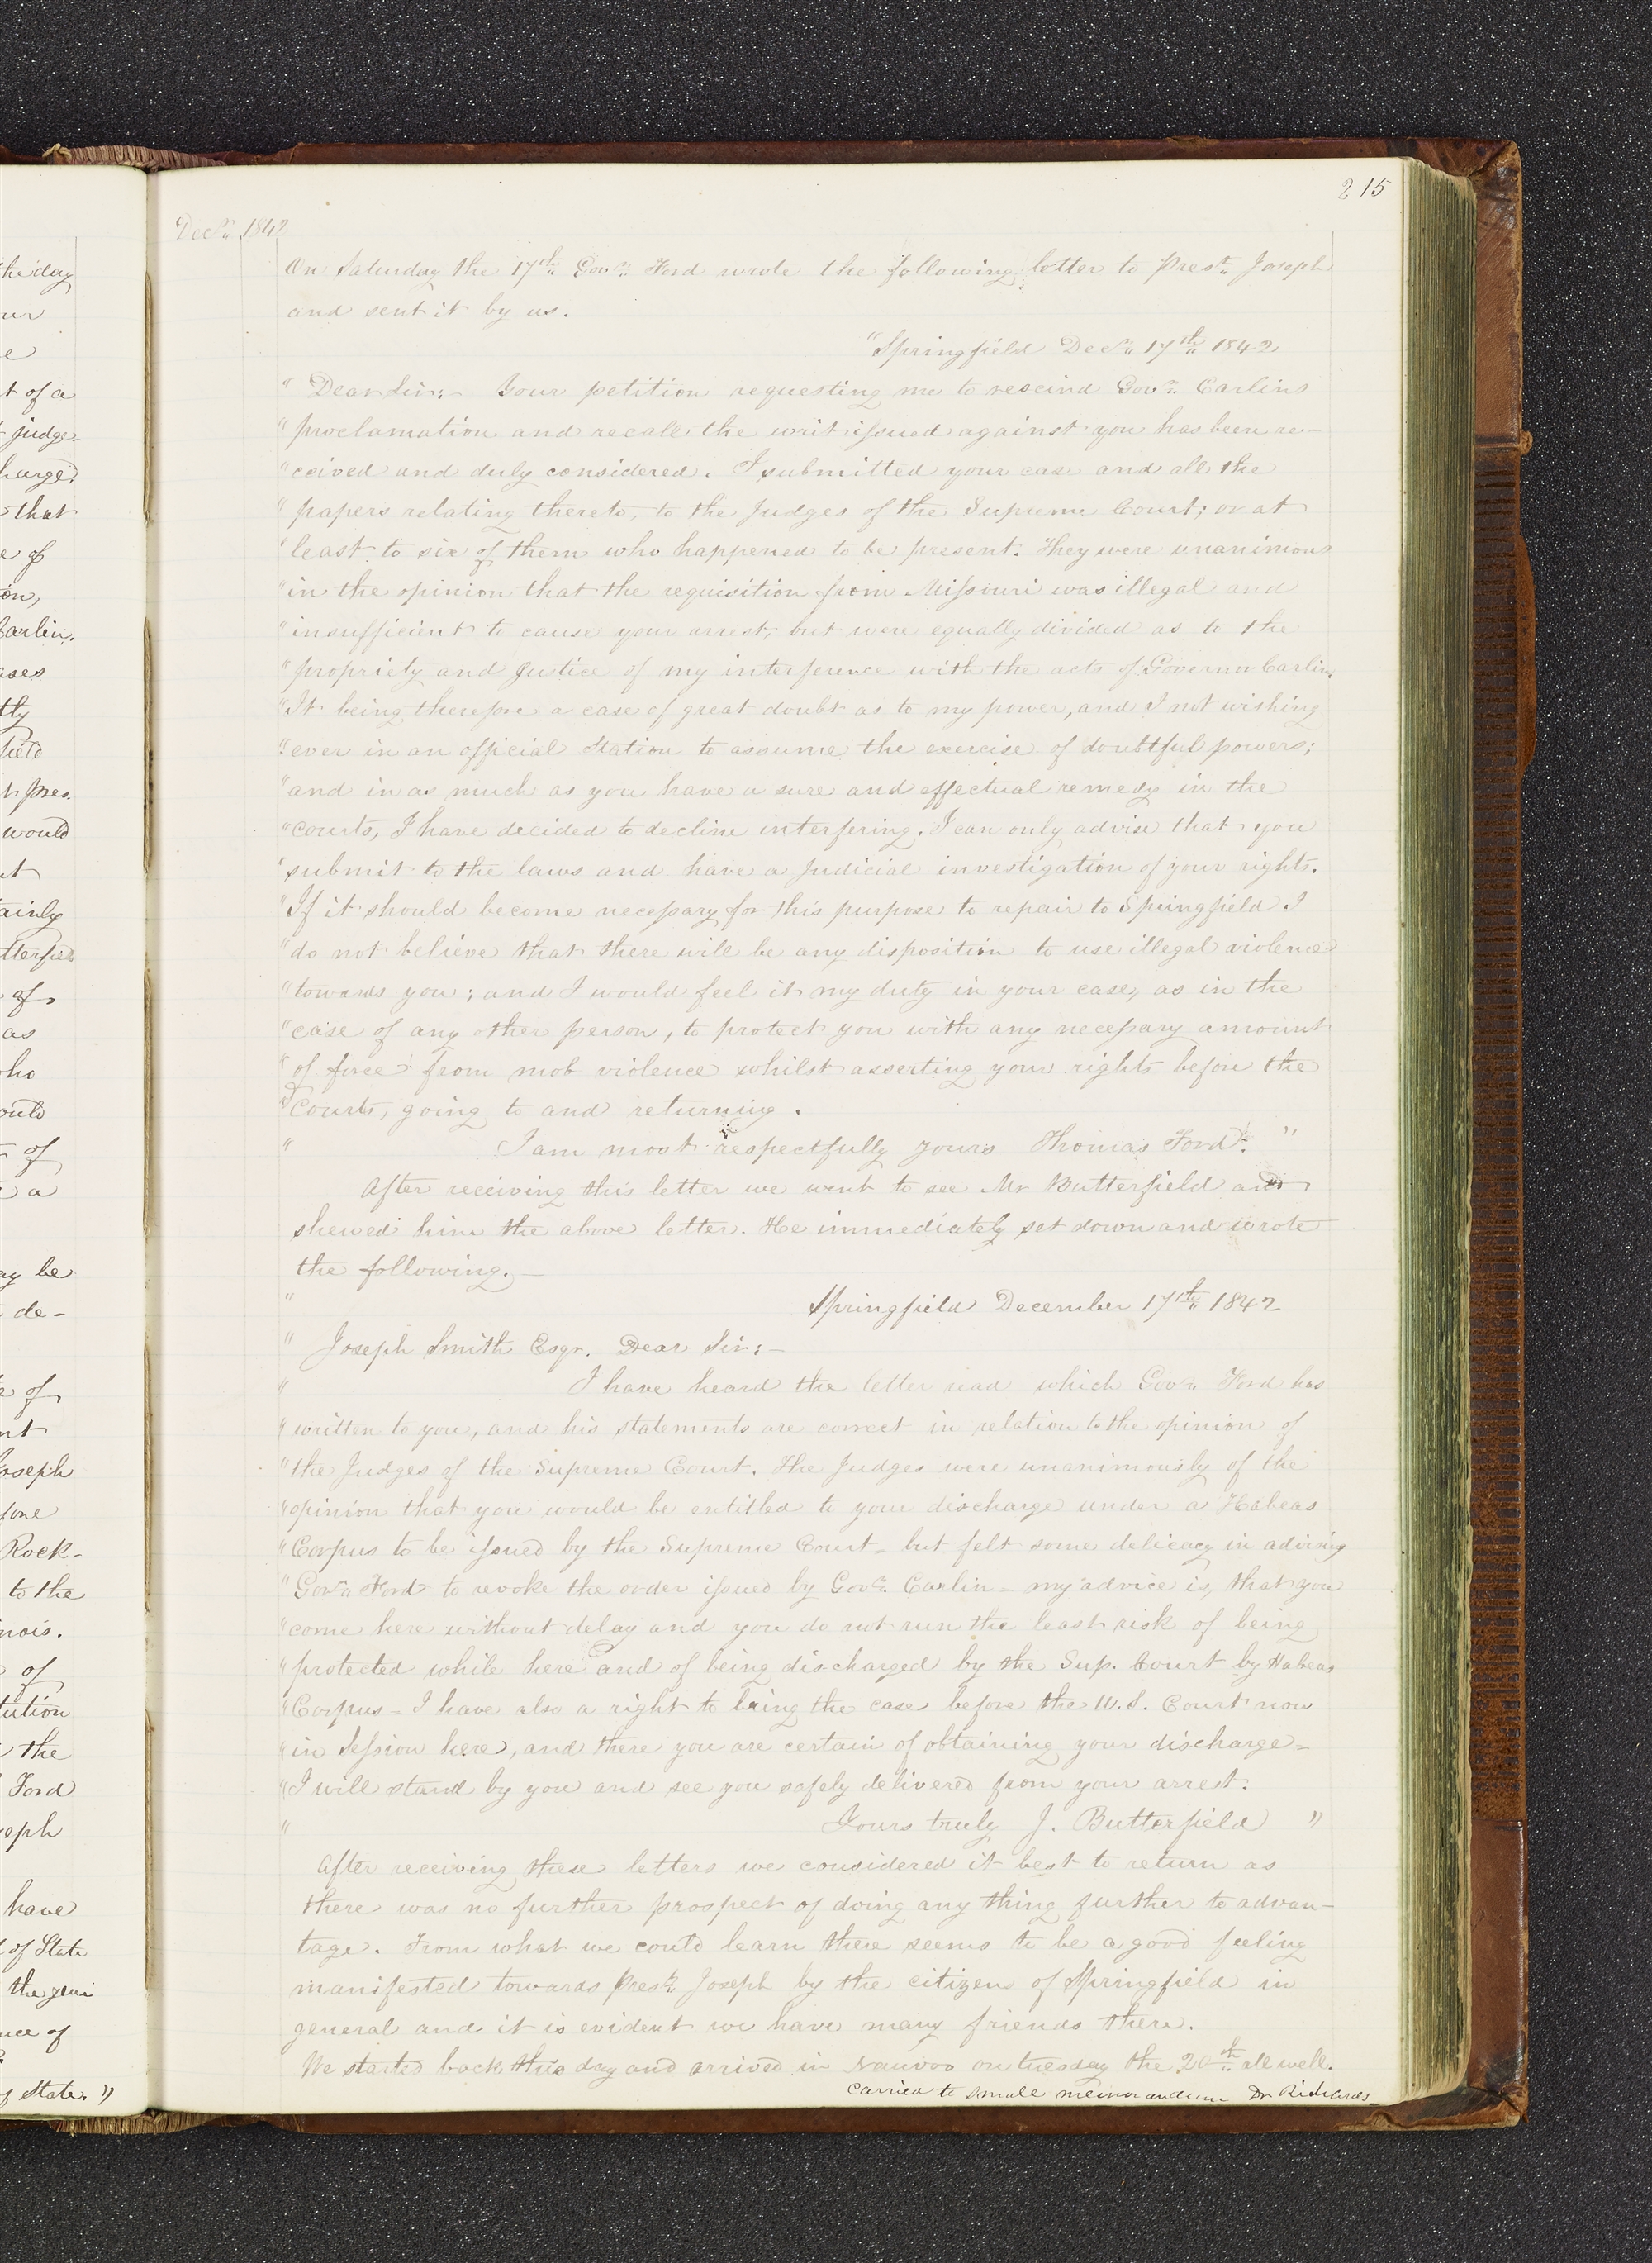 215
Decr. 1842
On Saturday the 17th Govr. Ford wrote the following letter to Prest. Joseph
and sent it by us.
"Springfield Decr. 17th 1842
" Dear Sir:- Your petition requesting me to rescind Govr. Carlins
" proclamation and recall the writ issued against you has been re-
" ceived and duly considered. I submitted your case and all the
" papers relating thereto, to the Judges of the Supreme Court; or at
" least to six of them who happened to be present. They were unanimous
" in the opinion that the requisition from Missouri was illegal and
" insufficient to cause your arrest, but were equally divided as to the
" propriety and Justice of my interference with the acts of Governor Carlin.
" It being therefore a case of great doubt as to my power, and I not wishing
" ever in an official Station to assume the exercise of doubtful powers;
" and in as much as you have a sure and effectual remedy in the
" courts, I have decided to decline interfering. I can only advise that you
" submit to the laws and have a Judicial investigation of your rights.
" If it should become necessary for this purpose to repair to Springfield I
" do not believe that there will be any disposition to use illegal violence
" towards you; and I would feel it my duty in your case, as in the
" case of any other person, to protect you with any necessary amount
" of force from mob violence whilst asserting your rights before the
" Courts, going to and returning.
" I am most respectfully yours Thomas Ford. "
After receiving this letter we went to see Mr Butterfield and
shewed him the above letter. He immediately set down and wrote
the following.—
" Springfield December 17th 1842
" Joseph Smith Esqr. Dear Sir:—
" I have heard the letter read which Govr. Ford has
" written to you, and his statements are correct in relation to the opinion of
" the Judges of the Supreme Court. The Judges were unanimously of the
" opinion that you would be entitled to your discharge under a Habeas
" Corpus to be issued by the Supreme Court - but felt some delicacy in advising
" Govr. Ford to revoke the order issued by Govr. Carlin - my advice is, that you
" come here without delay and you do not run the least risk of being
" protected while here and of being discharged by the Sup. Court by Habeas
" Corpus - I have also a right to bring the case before the U.S. Court now
" in Session here, and there you are certain of obtaining your discharge -
" I will stand by you and see you safely delivered from your arrest.
" Yours truly J. Butterfield "
After receiving these letters we considered it best to return as
there was no further prospect of doing any thing further to advan-
tage. From what we could learn there seems to be a good feeling
manifested towards Prest. Joseph by the citizens of Springfield in
general and it is evident we have many friends there.
We started back this day and arrived in Nauvoo on tuesday the 20th all well.
carried to small memorandum Dr Richards-
the day
e
t of a
judge-
that
e of
Carlin.
t Pres.
would
of
as
of
a
ay be
de-
of
Joseph
Rock-
to the
of
the
Ford
have
of State
of State. "